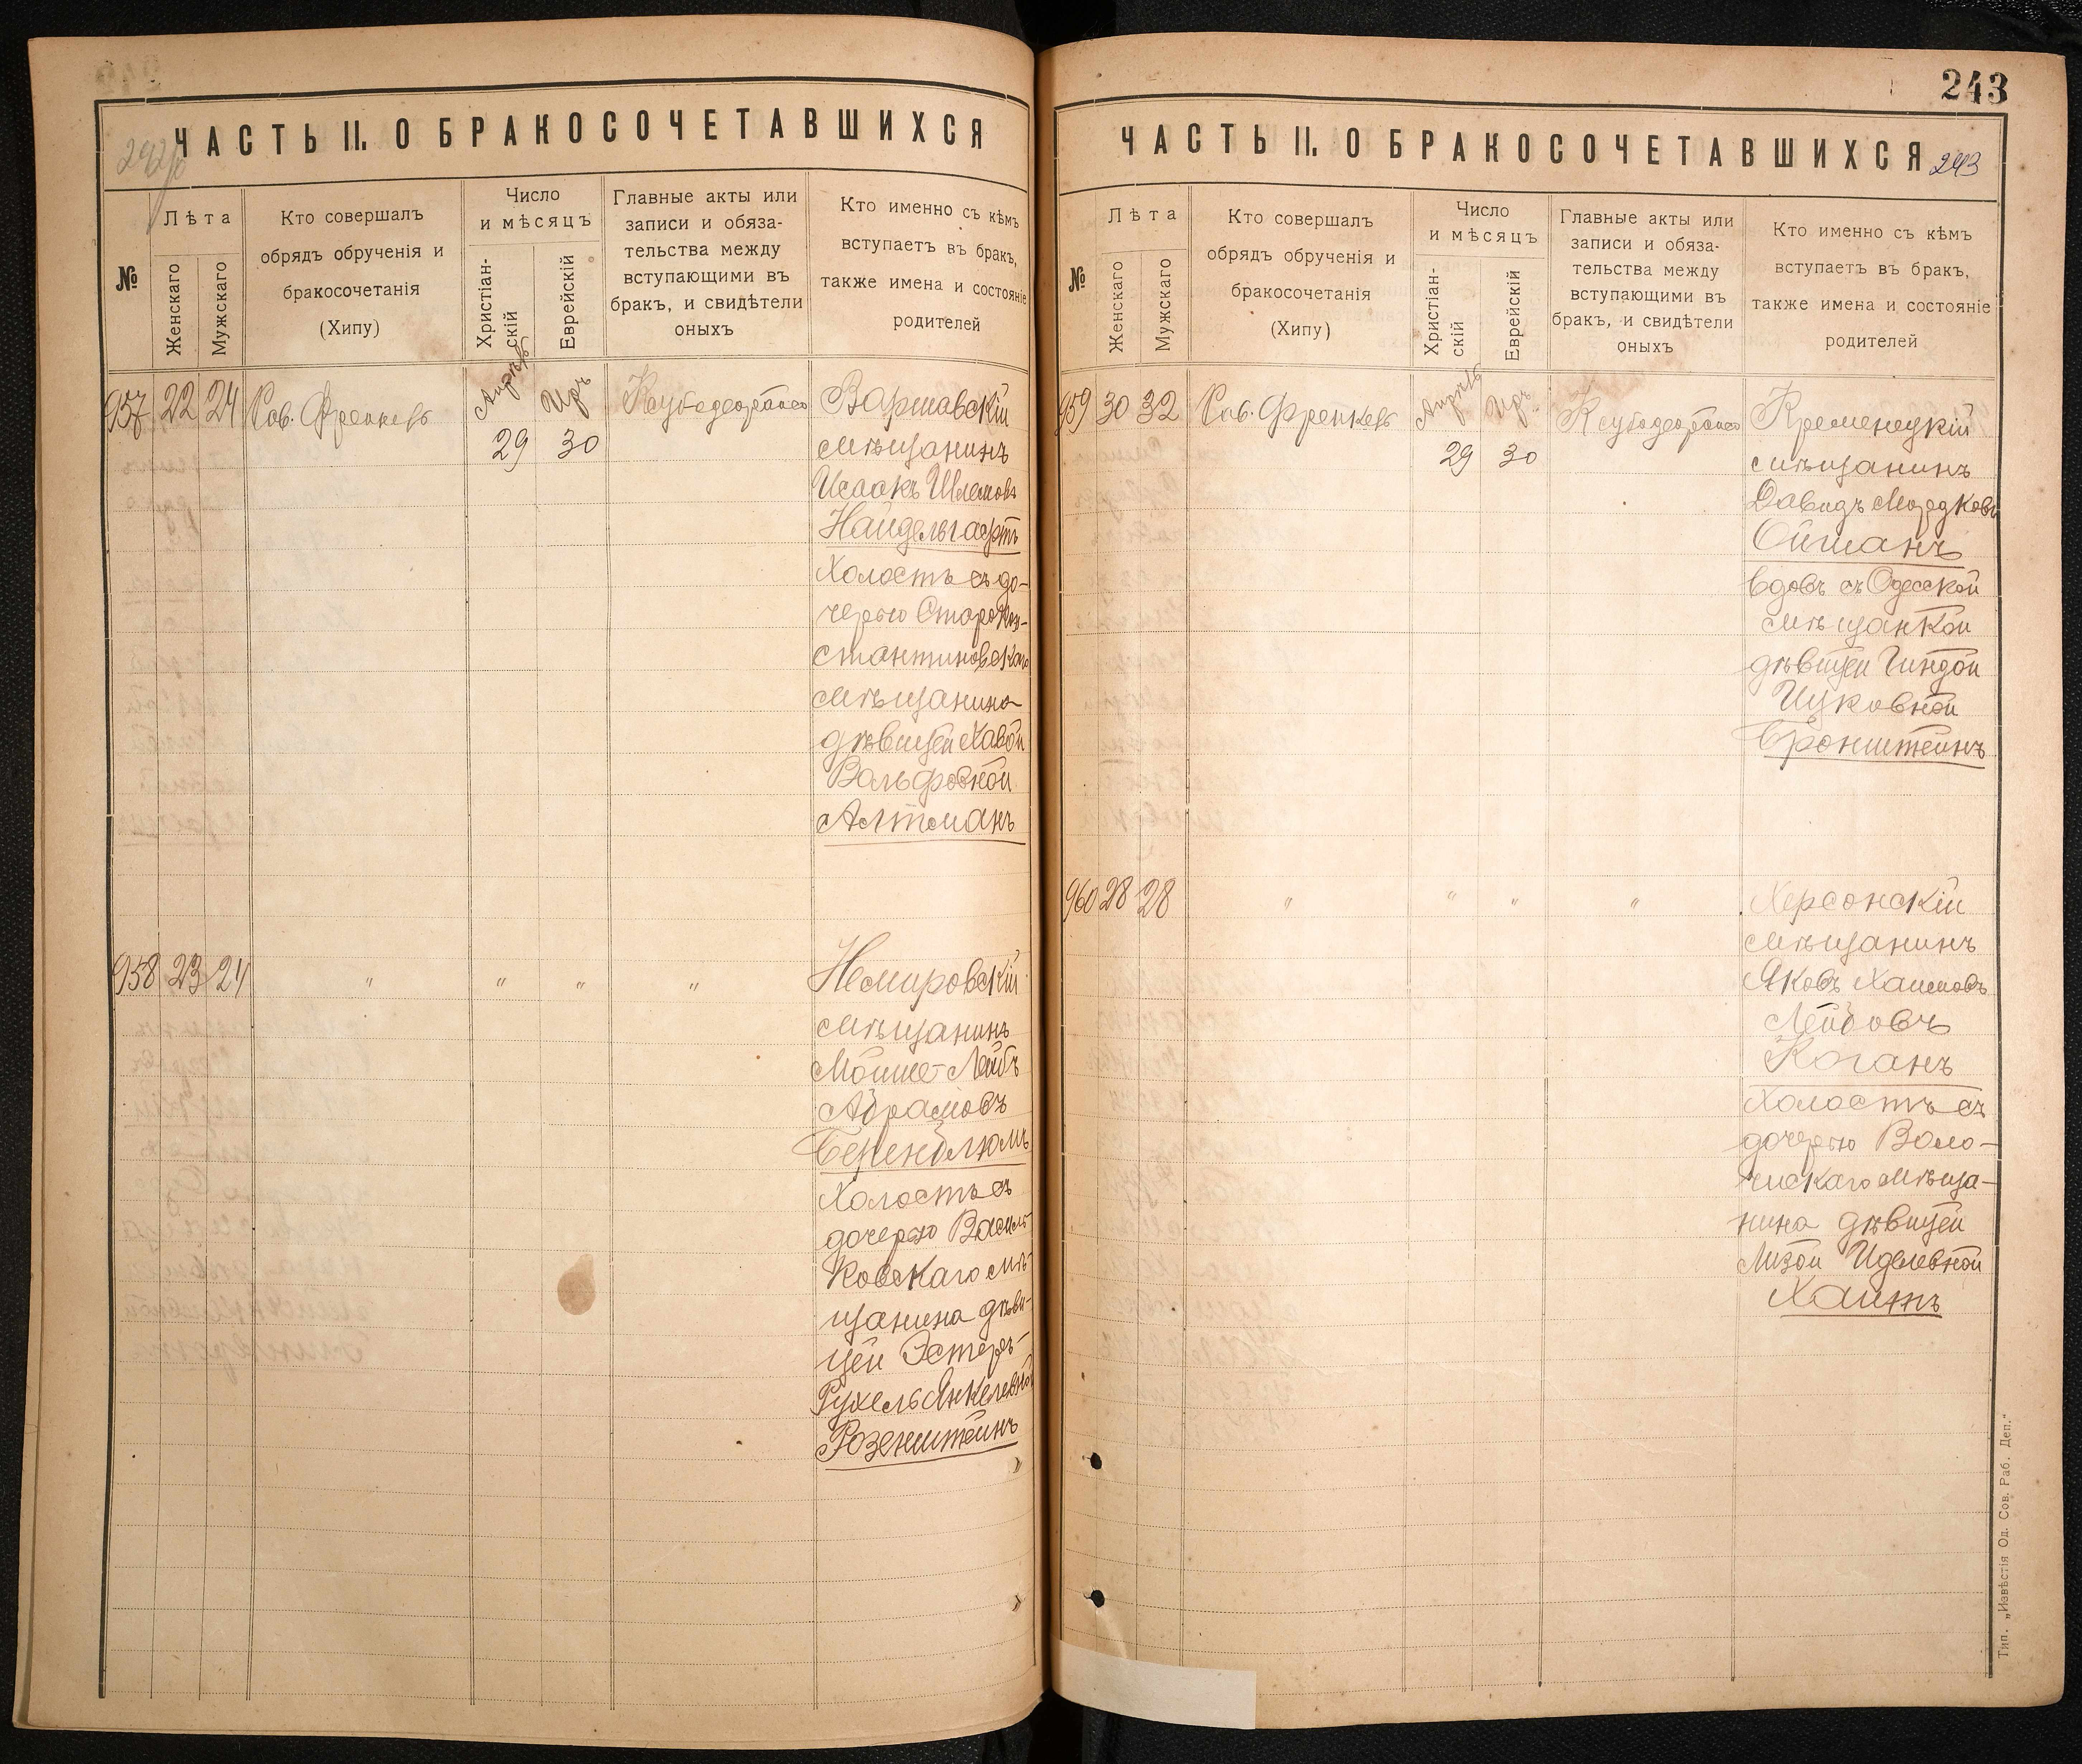 ЧАСТЬ II. О БРАКОСОЧЕТАВШИХСЯ
№
Лѣта
Женскаго
Мужскаго
Кто совершалъ
обрядъ обрученія и
бракосочетанія
(Хипу)
Число
и мѣсяцъ
Христіан-
скій
Еврейскій
Главные акты или
записи и обяза-
тельства между
вступающими въ
бракъ, и свидѣтели
оныхъ
Кто именно съ кѣмъ
вступаетъ въ бракъ,
также имена и состояніе
родителей
957 22 24 Рав. Френкель
Апрѣль Иръ
29 30
Варшавскій
мѣщанинъ
Исаакъ Шлемовъ
Найдельгафтъ
Холостъ съ до-
черью Старокон-
стантиновскаго
мѣщанина
дѣвицей Хавой
Вольфовной
Алтманъ
958 23 24 " " " "
Немировскій
мѣщанинъ
Мойше-Лейбъ
Абрамовъ
Беренблюмъ
Холостъ съ
дочерью Василь
ковскаго мѣ-
щанина дѣви-
цей Эстеръ-
Рухель Янкелевной
Розенштейнъ
243
ЧАСТЬ II. О БРАКОСОЧЕТАВШИХСЯ
243
№
Лѣта
Женскаго
Мужскаго
Кто совершалъ
обрядъ обрученія и
бракосочетанія
(Хипу)
Число
и мѣсяцъ
Христіан-
скій
Еврейскій
Главные акты или
записи и обяза-
тельства между
вступающими въ
бракъ, и свидѣтели
оныхъ
Кто именно съ кѣмъ
вступаетъ въ бракъ,
также имена и состояніе
родителей
959 30 32 Рав. Френкель
Апрѣль Иръ
29 30
Кременецкій
мѣщанинъ
Давидъ Мордковъ
Ойшанъ
вдовъ съ Одесской
мѣщанкой
дѣвицей Гиндой
Ицковной
Бронштейнъ
960 28 28 " " " "
Херсонскій
мѣщанинъ
Яковъ Хаимовъ
Лейбовъ
Коганъ
Холостъ съ
дочерью Воло-
чискаго мѣща-
нина дѣвицей
Лизой Иделевной
Хаитъ
Тип. „Извѣстія Од. Сов. Раб. Деп."